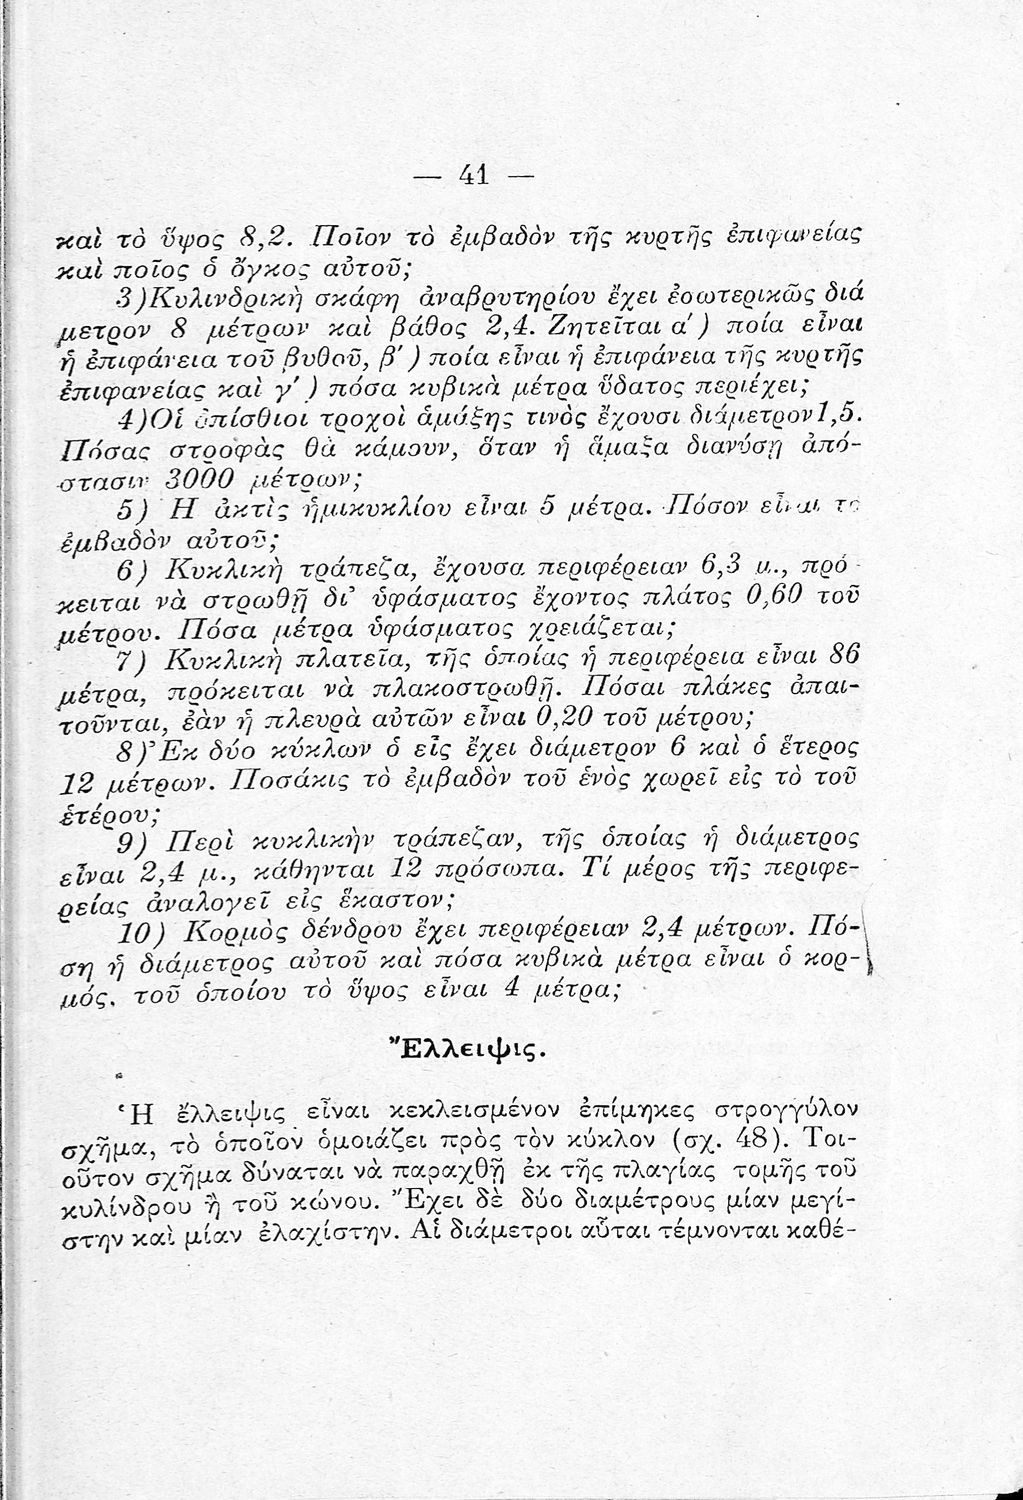 — 41 —
καὶ τὸ ὕψος 8,2. Ποῖον τὸ ἐμβαδὸν τῆς κυρτῆς ἐπιφανείας
καὶ ποῖος ὁ ὄγκος αὐτοῦ;
3)Κυλινδρικὴ σκάφη ἀναβρυτηρίου ἔχει ἐσωτερικῶς διά
μετρον 8 μέτρων καὶ βάθος 2,4. Ζητεῖται α') ποία εἶναι
ἡ ἐπιφάνεια τοῦ βυθοῦ, β') ποία εἶναι ἡ ἐπιφάνεια τῆς κυρτῆς
ἐπιφανείας καὶ γ') πόσα κυβικὰ μέτρα ὕδατος περιέχει;
4)Οἱ ὀπίσθιοι τροχοὶ ἁμάξης τινὸς ἔχουσι διάμετρον1,5.
Πόσας στροφὰς θὰ κάμουν, ὅταν ἡ ἅμαξα διανύσῃ ἀπό-
στασιν 3000 μέτρων;
5) Ἡ ἀκτὶς ἡμικυκλίου εἶναι 5 μέτρα. Πόσον εἶναι το
ἐμβαδὸν αὐτοῦ;
6) Κυκλικὴ τράπεζα, ἔχουσα περιφέρειαν 6,3 μ., πρό-
κειται νὰ στρωθῇ δι' ὑφάσματος ἔχοντος πλάτος 0,60 τοῦ
μέτρου. Πόσα μέτρα ὑφάσματος χρειάζεται;
7) Κυκλικὴ πλατεῖα, τῆς ὁποίας ἡ περιφέρεια εἶναι 86
μέτρα, πρόκειται νὰ πλακοστρωθῇ. Πόσαι πλάκες ἀπαι-
τοῦνται, ἐὰν ἡ πλευρὰ αὐτῶν εἶναι 0,20 τοῦ μέτρου;
8)Ἐκ δύο κύκλων ὁ εἷς ἔχει διάμετρον 6 καὶ ὁ ἕτερος
12 μέτρων. Ποσάκις τὸ ἐμβαδὸν τοῦ ἑνὸς χωρεῖ εἰς τὸ τοῦ
ἑτέρου;
9) Περὶ κυκλικὴν τράπεζαν, τῆς ὁποίας ἡ διάμετρος
εἶναι 2,4 μ., κάθηνται 12 πρόσωπα. Τί μέρος τῆς περιφε-
ρείας ἀναλογεῖ εἰς ἕκαστον;
10) Κορμὸς δένδρου ἔχει περιφέρειαν 2,4 μέτρων. Πό-
ση ἡ διάμετρος αὐτοῦ καὶ πόσα κυβικὰ μέτρα εἶναι ὁ κορ-
μός, τοῦ ὁποίου τὸ ὕψος εἶναι 4 μέτρα;
Ἔλλειψις.
Ἡ ἔλλειψις εἶναι κεκλεισμένον ἐπίμηκες στρογγύλον
σχῆμα, τὸ ὁποῖον ὁμοιάζει πρὸς τὸν κύκλον (σχ. 48). Τοι-
οῦτον σχῆμα δύναται νὰ παραχθῇ ἐκ τῆς πλαγίας τομῆς τοῦ
κυλίνδρου ἢ τοῦ κώνου. Ἔχει δὲ δύο διαμέτρους μίαν μεγί-
στην καὶ μίαν ἐλαχίστην. Αἱ διάμετροι αὗται τέμνονται καθέ-